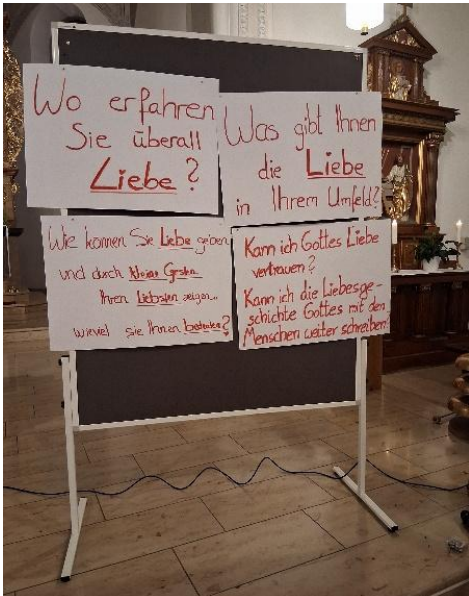 Wo erfahren
Sie überall
Liebe?
Was gibt Ihnen
die Liebe
in Ihrem Umfeld?
Wie können Sie Liebe geben
und durch kleine Gesten
Ihren Liebsten zeigen...
wieviel sie Ihnen bedeuten?
Kann ich Gottes Liebe
vertrauen?
Kann ich die Liebesge-
schichte Gottes mit den
Menschen weiter schreiben?